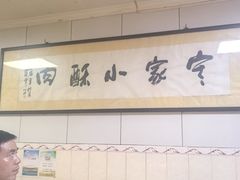 定家小酥肉